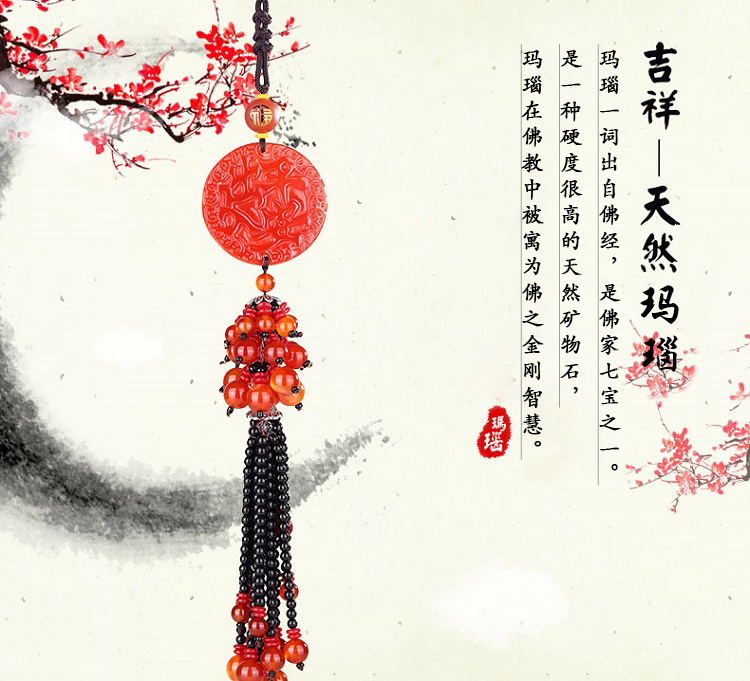 吉祥—天然玛瑙
玛瑙一词出自佛经，是佛家七宝之一。
是一种硬度很高的天然矿物石，
玛瑙在佛教中被寓为佛之金刚智慧。
瑪瑙
福